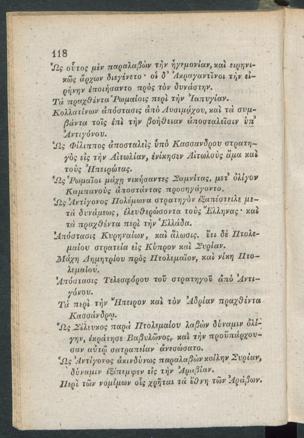 118
Ὡς οὗτος μὲν παραλαβὼν τὴν ἡγεμονίαν, καὶ εἰρηνι-
κῶς ἄρχων διεγένετο· οἱ δ᾽ Ἀκραγαντῖνοι τὴν εἰ-
ρήνην ἐποιήσαντο πρὸς τὸν δυνάστην.
Τὰ πραχθέντα Ῥωμαίοις περὶ τὴν Ἰαπυγίαν.
Καλλατινῶν ἀπόστασις ἀπὸ Λυσιμάχου, καὶ τὰ συμ-
βάντα τοῖς ἐπὶ τὴν βοήθειαν ἀποσταλεῖσιν ὑπ᾽
Ἀντιγόνου.
Ὡς Φίλιππος ἀποσταλεὶς ὑπὸ Κασσάνδρου στρατη-
γὸς εἰς τὴν Αἰτωλίαν, ἐνίκησεν Αἰτωλοὺς ἅμα καὶ
τοὺς Ἠπειρώτας.
Ὡς Ῥωμαῖοι μάχῃ νικήσαντες Σαμνίτας, μετ᾽ ὀλίγον
Καμπανοὺς ἀποστάντας προσηγάγοντο.
Ὡς Ἀντίγονος Πολέμωνα στρατηγὸν ἐξαπέστειλε με-
τὰ δυνάμεως, ἐλευθερώσοντα τοὺς Ἕλληνας· καὶ
τὰ πραχθέντα περὶ τὴν Ἑλλάδα.
Ἀπόστασις Κυρηναίων, καὶ ἅλωσις. ἔτι δὲ Πτολε-
μαίου στρατεία εἰς Κύπρον καὶ Συρίαν.
Μάχη Δημητρίου πρὸς Πτολεμαῖον, καὶ νίκη Πτο-
λεμαίου.
Ἀπόστασις Τελεσφόρου τοῦ στρατηγοῦ ἀπὸ Ἀντι-
γόνου.
Τὰ περὶ τὴν Ἤπειρον καὶ τὸν Ἀδρίαν πραχθέντα
Κασσάνδρῳ.
Ὡς Σέλευκος παρὰ Πτολεμαίου λαβὼν δύναμιν ὀλί-
γην, ἐκράτησε Βαβυλῶνος, καὶ τὴν προϋπάρχου-
σαν αὐτῷ σατραπείαν ἀνεσώσατο.
Ὡς Ἀντίγονος ἀκινδύνως παραλαβὼν κοίλην Συρίαν,
δύναμιν ἐξέπεμψεν εἰς τὴν Ἀραβίαν.
Περὶ τῶν νομίμων οἷς χρῆται τὰ ἔθνη τῶν Ἀράβων.